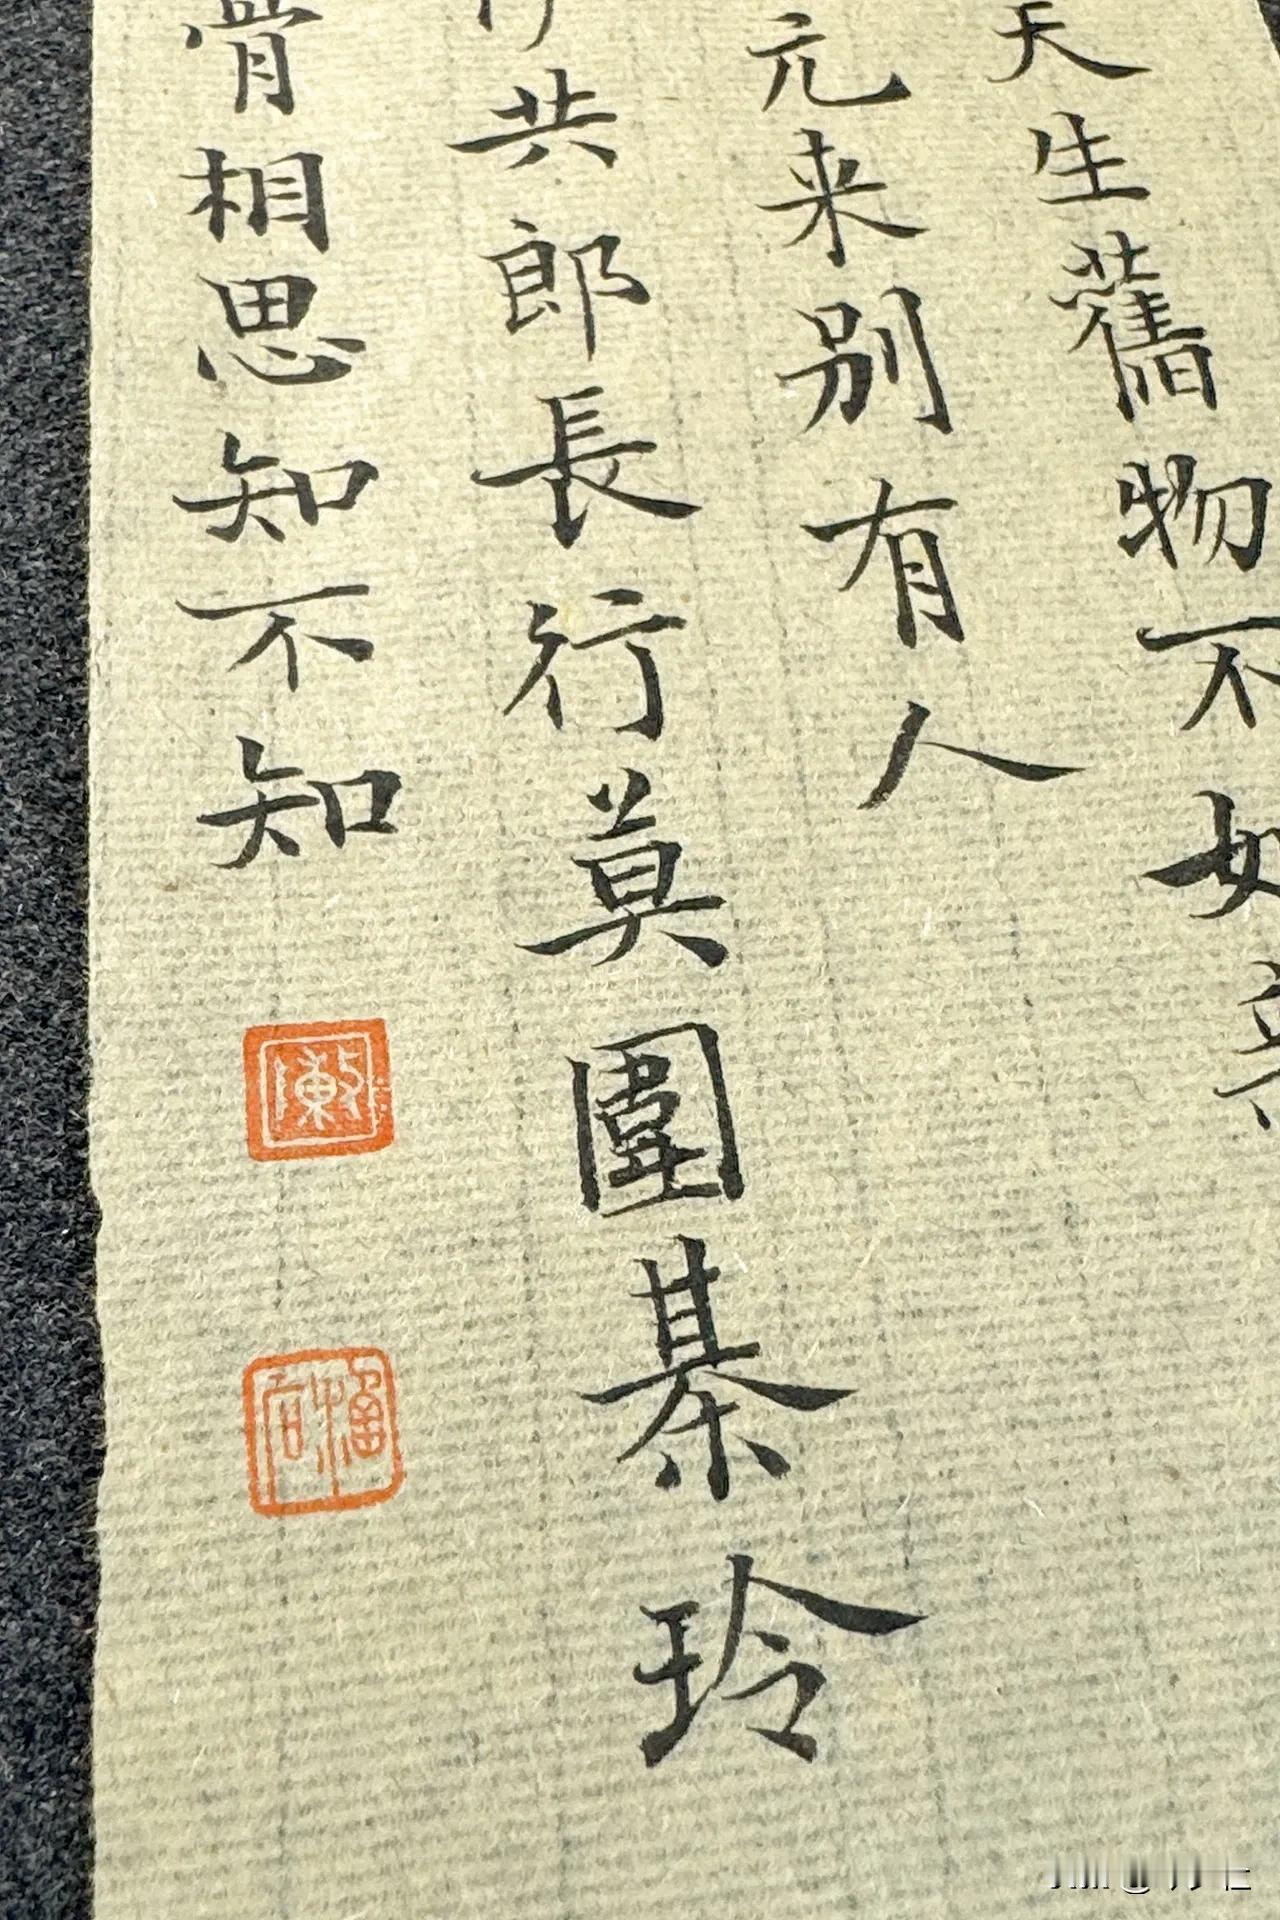 天生舊物不如新
元来别有人
共郎長行莫圍棊玲
骨相思知不知